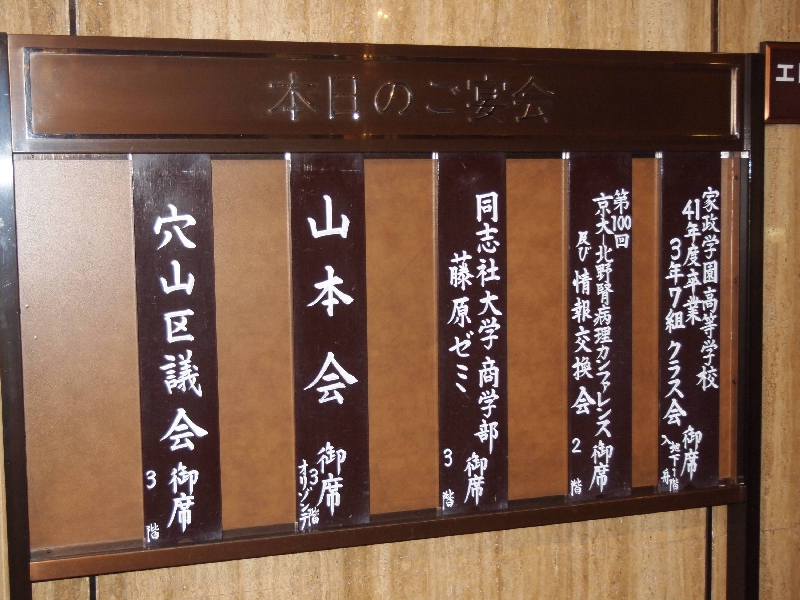 本日のご宴会
家政学園高等学校
41年度卒業
3年7組 クラス会 御席
地下1階
入舟
第100回
京大-北野腎病理カンファレンス
及び 情報交換会 御席
2階
同志社大学商学部
藤原ゼミ 御席
3階
山本会 御席
3階
オリゾンテ
穴山区議会 御席
3階
エ